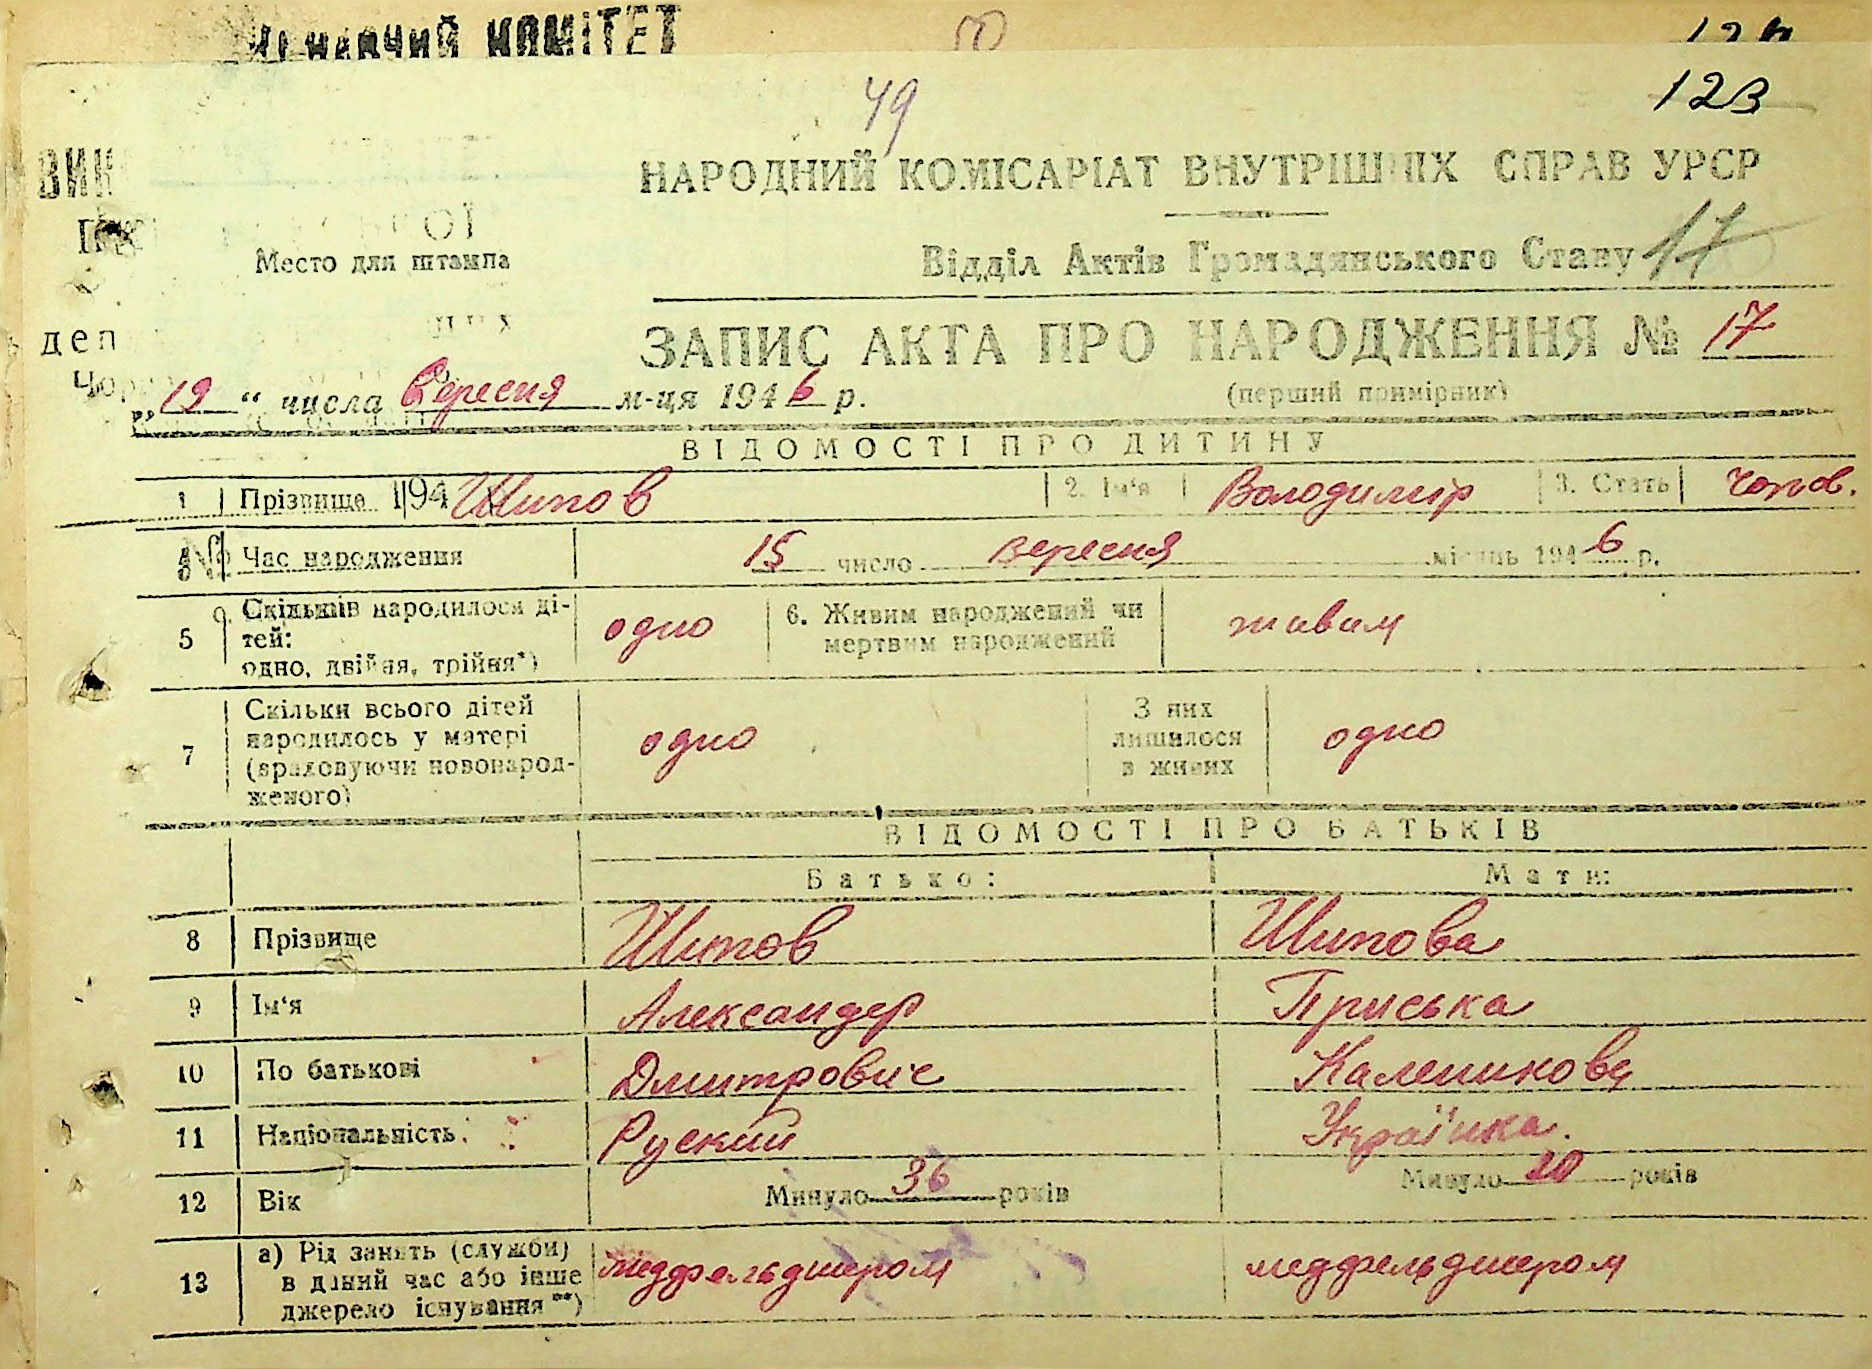 КОМІТЕТ
50
124
49
123
ВИН
НАРОДНИЙ КОМІСАРІАТ ВНУТРІШНІХ СПРАВ УРСР
Место для штампа
Відділ Актів Громадянського Стану 17
деп
ЗАПИС АКТА ПРО НАРОДЖЕННЯ № 17
„19“ числа Вересня м-ця 1946 р.
(перший примірник)
ВІДОМОСТІ ПРО ДИТИНУ
1 Прізвище 194 Шипов 2. Ім'я Володимір 3. Стать чолов.
№ Час народження 15 число вересня місяць 1946 р.
5 Скільки народилося ді-
тей:
одно, двійня, трійня*) одно 6. Живим народжений чи
мертвим народжений живим
7 Скільки всього дітей
народилось у матері
(враховуючи новонарод-
женого) одно З них
лишилося
в живих одно
ВІДОМОСТІ ПРО БАТЬКІВ
Батько: Мати:
8 Прізвище Шипов Шипова
9 Ім'я Александер Приська
10 По батькові Дмитрович Калениковц
11 Національність Руский Українка.
12 Вік Минуло 36 років Минуло 20 років
13 а) Рід занять (служби)
в даний час або інше
джерело існування**) медфельдшером медфельдшером